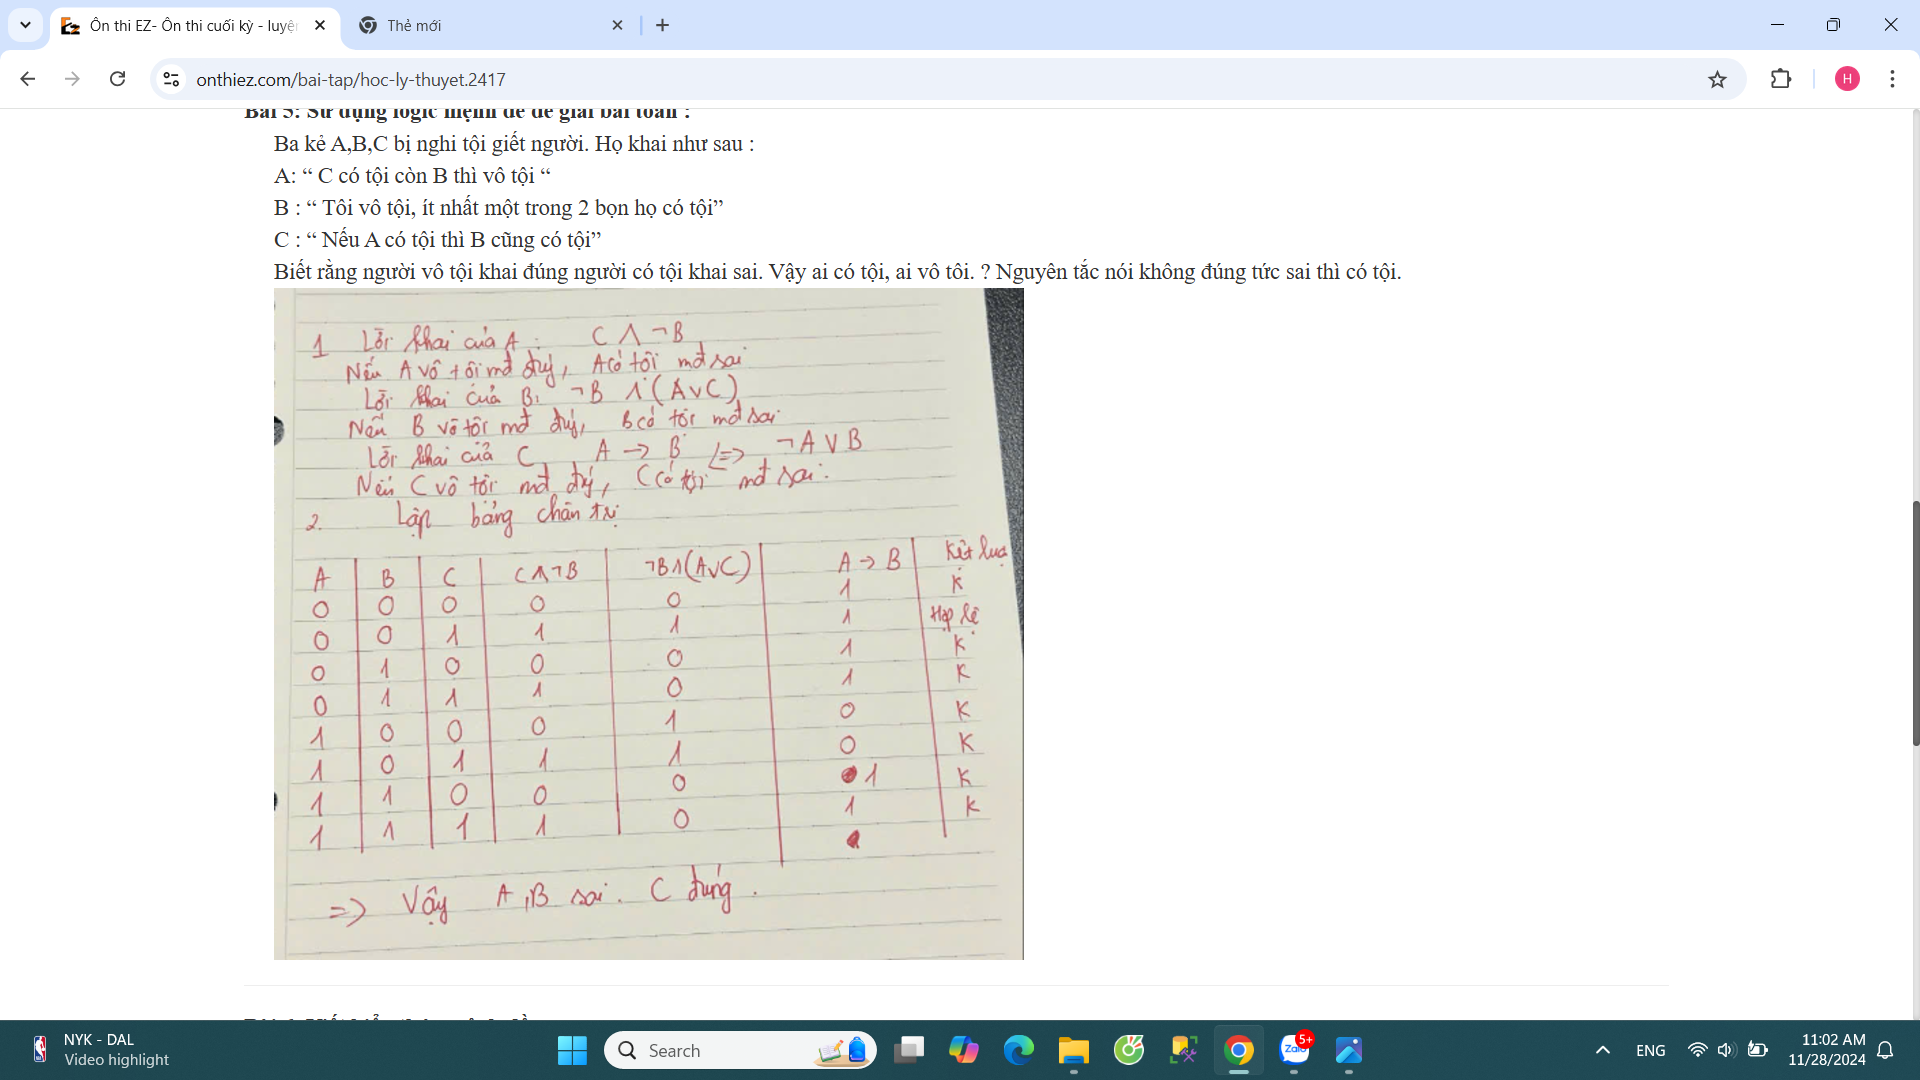 Ôn thi EZ- Ôn thi cuối kỳ - luyện
Thẻ mới
onthiez.com/bai-tap/hoc-ly-thuyet.2417
H
Bài 5: Sử dụng logic mệnh đề để giải bài toán :
Ba kẻ A,B,C bị nghi tội giết người. Họ khai như sau :
A: “ C có tội còn B thì vô tội “
B : “ Tôi vô tội, ít nhất một trong 2 bọn họ có tội”
C : “ Nếu A có tội thì B cũng có tội”
Biết rằng người vô tội khai đúng người có tội khai sai. Vậy ai có tội, ai vô tôi. ? Nguyên tắc nói không đúng tức sai thì có tội.
1 Lời khai của A : C ∧ ¬B
Nếu A vô tội mđ đúng, A có tội mđ sai
Lời khai của B: ¬B ∧ (A∨C)
Nếu B vô tội mđ đúng, B có tội mđ sai
Lời khai của C A → B <=> ¬A ∨ B
Nếu C vô tội mđ đúng, C có tội mđ sai.
2. Lập bảng chân trị
A B C C∧¬B ¬B∧(A∨C) A → B Kết luạ
0 0 0 0 0 1 K
0 0 1 1 1 1 Hợp lệ
0 1 0 0 0 1 K
0 1 1 1 0 1 K
1 0 0 0 1 0 K
1 0 1 1 1 0 K
1 1 0 0 0 1 K
1 1 1 1 0 1 K
=> Vậy A,B sai. C đúng.
NYK - DAL
Video highlight
Search
Zalo
5+
ENG
11:02 AM
11/28/2024